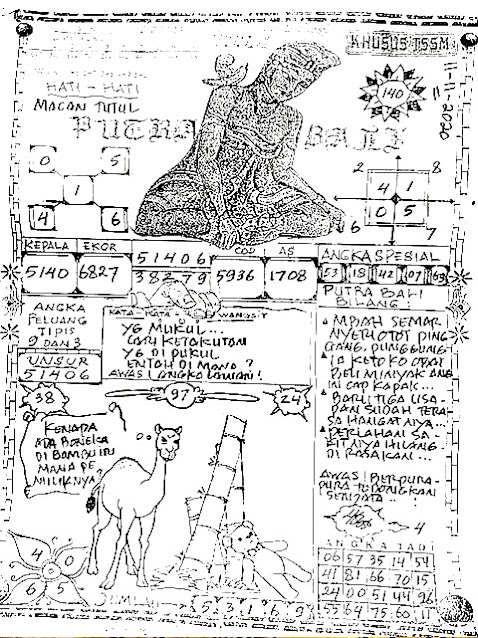 KHUSUS TSSM
HATI - HATI
MACAN TUTUL
140
11-11-2020
PUTRA BALI
0 5
1
4 6
2 8
4 1
0 5
6 7
KEPALA EKOR
5140 6827
51406
38279
COP AS
5936 1708
ANGKA SPESIAL
53 18 42 07 69
PUTRA BALI
BILANG:
ANGKA
PELUANG
TIPIS
9 DAN 3
UNSUR
51406
KATA - KATA WANGSIT
YG MUKUL...
CARI KETAKUTAN
YG DI PUKUL
ENTAH DI MANA?
AWAS! LANGKO LAWAN!
MBAH SEMAR
NYERI OTOT PING
GANG, PUNGGUNG
IA KE TOKO OBAT
BELI MINYAK ANG
IN CAP KAPAK...
BARU TIGA USA-
PAN SUDAH TERA-
SA HANGATNYA...
PERLAHAN SA-
KITNYA HILANG
DI RASAKAN...
AWAS! BERPURA-
PURA TODONGKAN
SENJATA...!
38
97
24
KENAPA
ADA BONEKA
DI BAMBU INI
MANA PE
MILIKNYA?
4
4 0
6 5
ANGKA JADI
06 57 35 14 54
41 81 66 70 15
24 00 51 44 96
53 64 75 60 11
JUMLAH
5 3 1 6 9